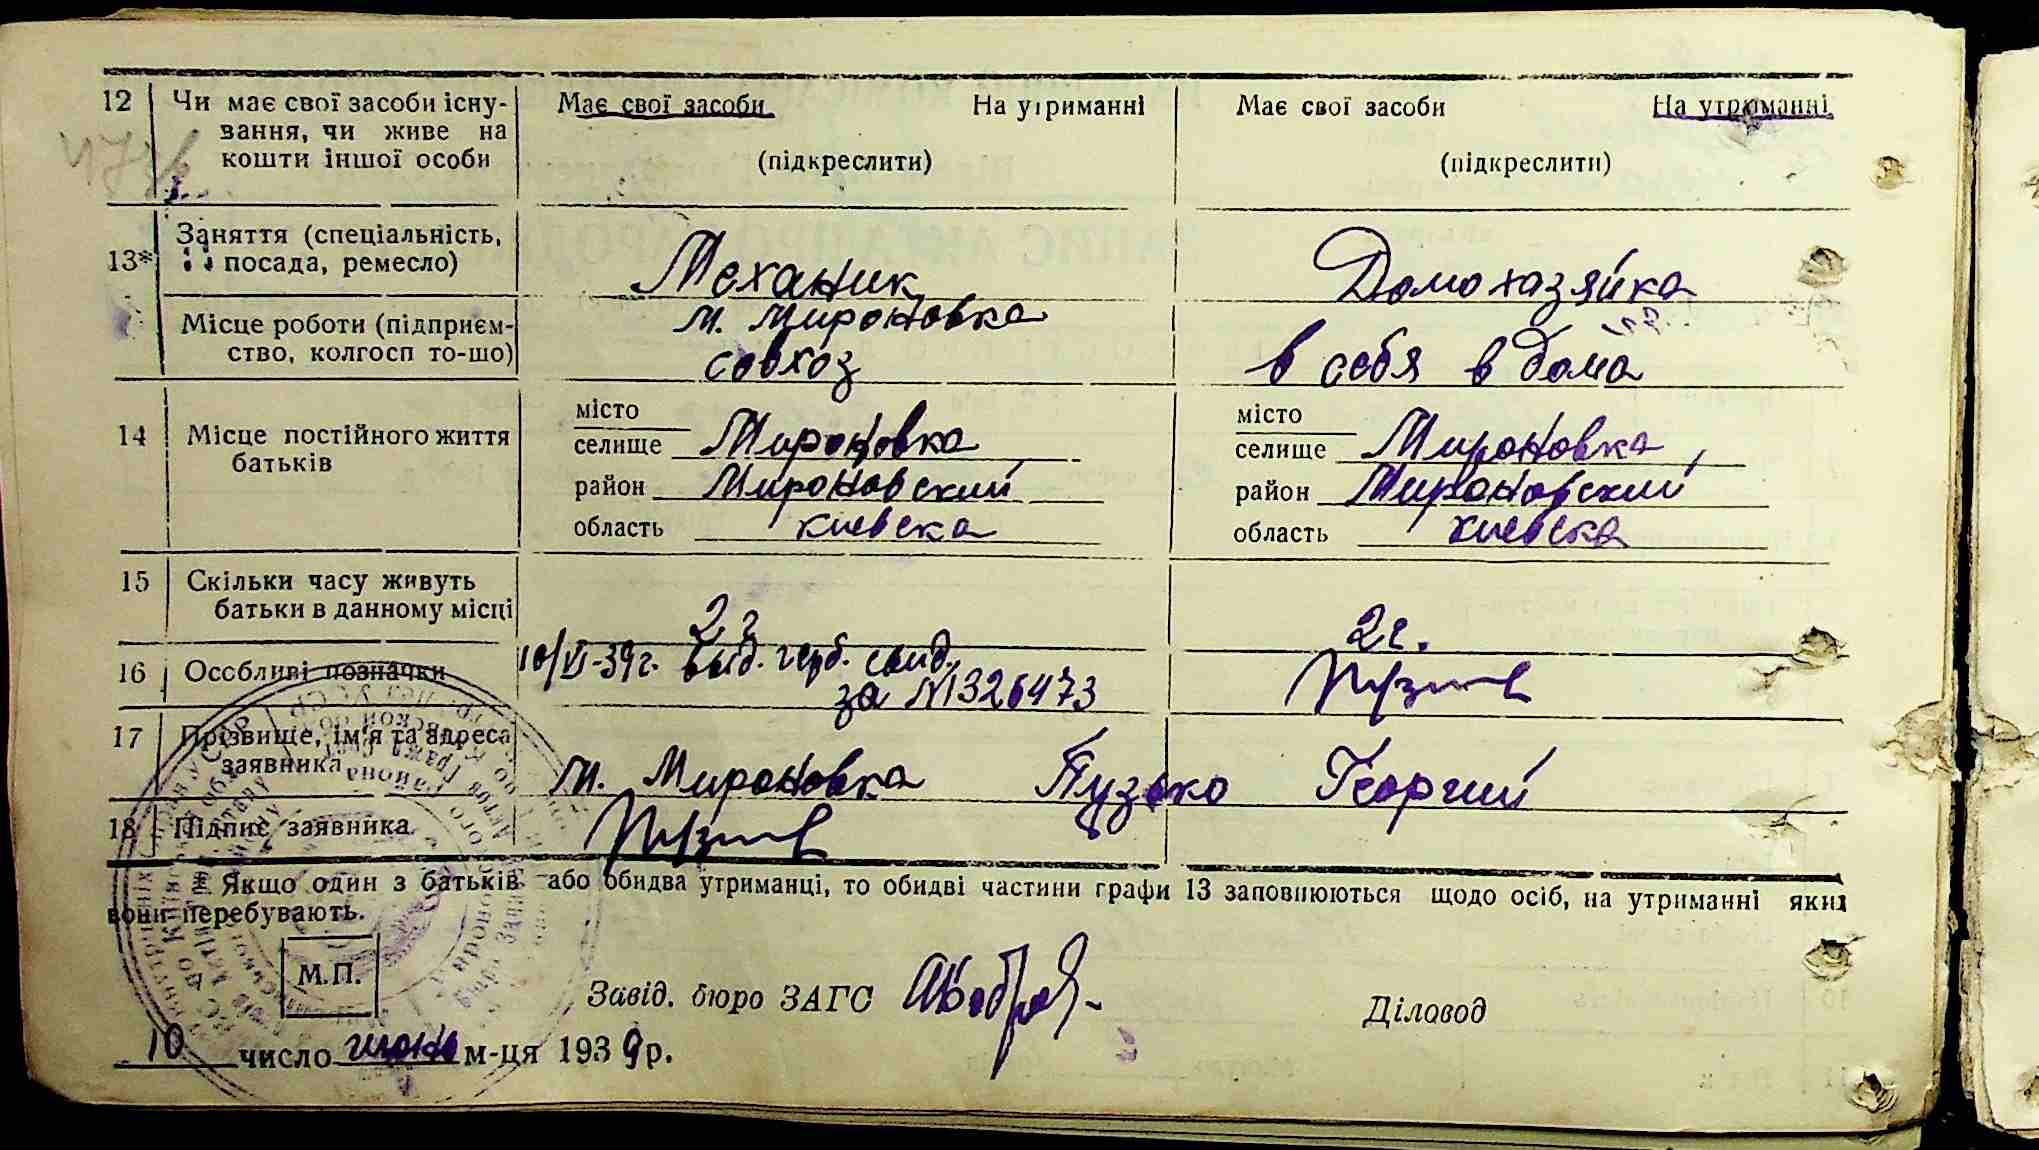 12 Чи має свої засоби існу- Має свої засоби На утриманні Має свої засоби На утриманні
вання, чи живе на
кошти іншої особи (підкреслити) (підкреслити)
13* Заняття (спеціальність,
посада, ремесло) Механик Домохазяйка
Місце роботи (підприєм- м. Мироновка
ство, колгосп то-що) совхоз в себя в дома
14 Місце постійного життя
батьків
місто місто
селище Мироновка селище Мироновка,
район Мироновский район Мироновский
область киевска область киевска
15 Скільки часу живуть
батьки в данному місці 2 г 2 г.
16 Особливі позначки 10/VI-39г. выд. герб. свид.
за №326473
17 Прізвище, ім'я та адреса
заявника м. Мироновка Пузько Георгий
18 Підпис заявника
Якщо один з батьків або обидва утриманці, то обидві частини графи 13 заповнюються щодо осіб, на утриманні яких
вони перебувають.
М.П.
Завід. бюро ЗАГС Діловод
10 число июня м-ця 1939 р.